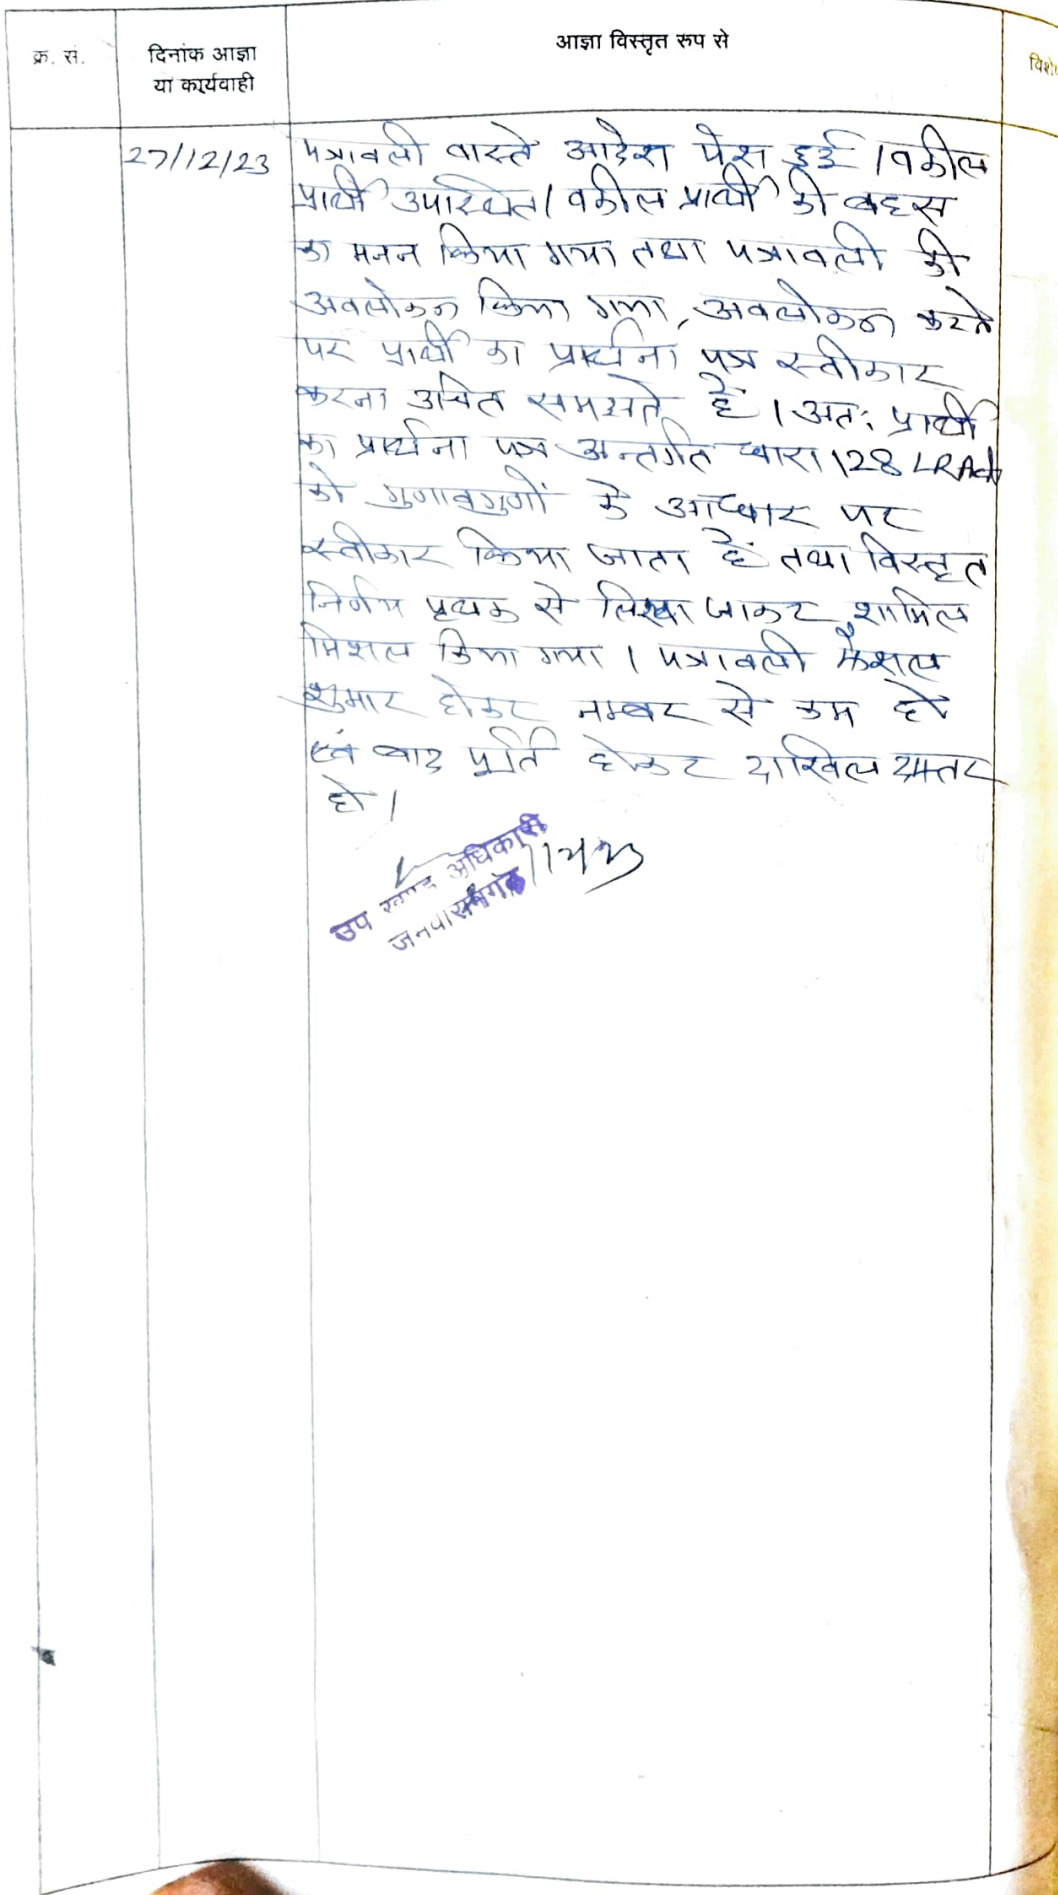 क्र. सं.
दिनांक आज्ञा
या कार्यवाही
आज्ञा विस्तृत रूप से
27/12/23
पत्रावली वास्ते आदेश पेश हुई । वकील
प्रार्थी उपस्थित। वकील प्रार्थी की बहस
का मनन किया गया तथा पत्रावली की
अवलोकन किया गया, अवलोकन करने
पर प्रार्थी का प्रार्थना पत्र स्वीकार
करना उचित समझते है । अतः प्रार्थी
का प्रार्थना पत्र अन्तर्गत धारा 128 LR Act
को गुणावगुणों के आधार पर
स्वीकार किया जाता हैं तथा विस्तृत
निर्णय पृथक से लिखा जाकर शामिल
मिशल किया गया । पत्रावली फैशल
शुमार होकर नम्बर से कम हो
एवं बाद पूर्ति होकर दाखिल दफ्तर
हो ।
उप खण्ड अधिकारी